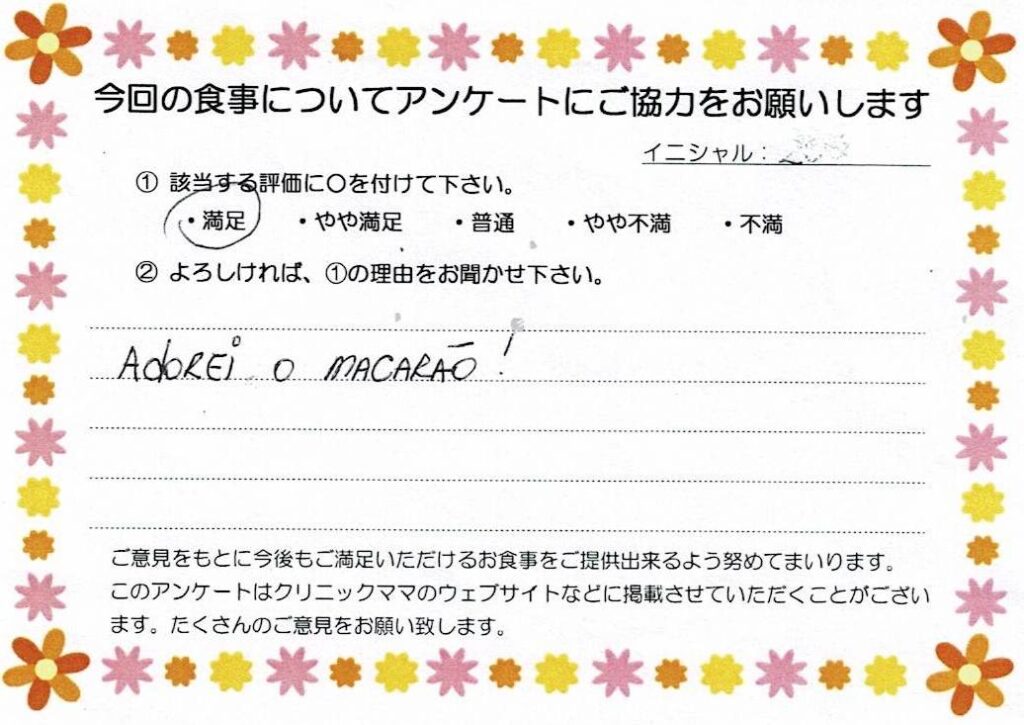 今回の食事についてアンケートにご協力をお願いします
イニシャル：
① 該当する評価に〇を付けて下さい。
・満足 ・やや満足 ・普通 ・やや不満 ・不満
② よろしければ、①の理由をお聞かせ下さい。
AdOREi O MACARÃO !
ご意見をもとに今後もご満足いただけるお食事をご提供出来るよう努めてまいります。
このアンケートはクリニックママのウェブサイトなどに掲載させていただくことがござい
ます。たくさんのご意見をお願い致します。